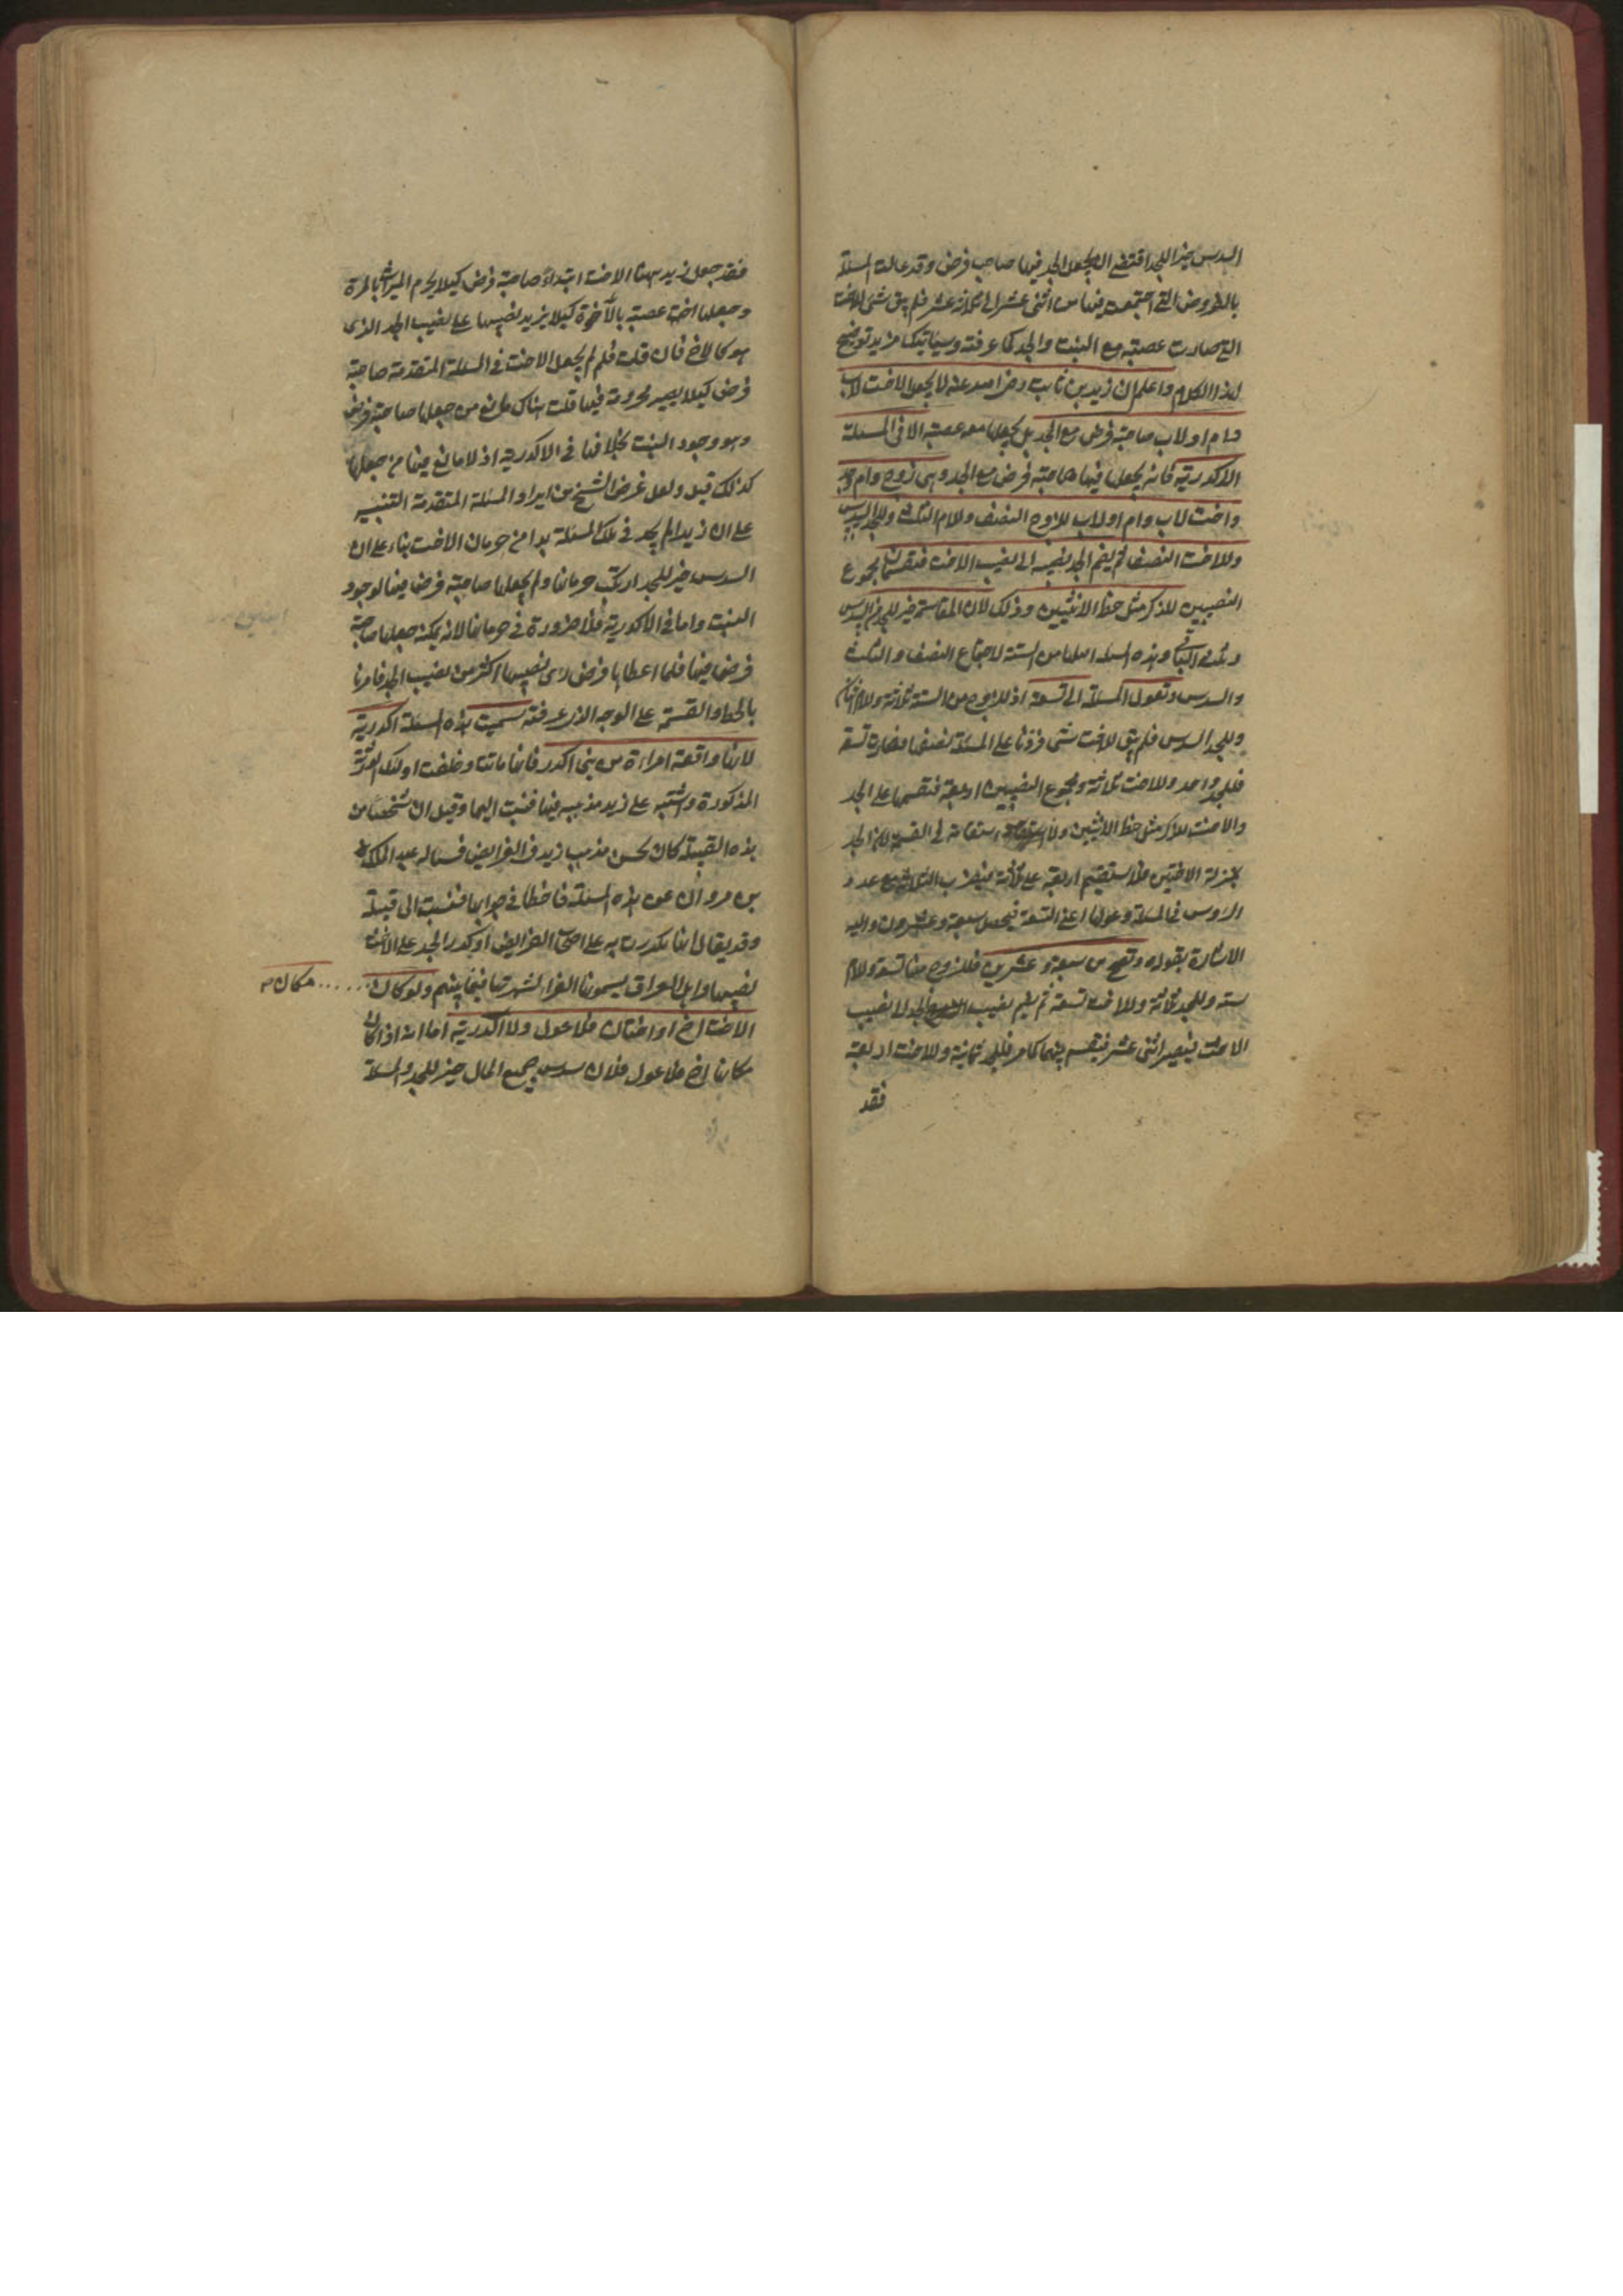 السدس خيرا للجد اقتضى ان يجعل الجد فيها صاحب فرض وقد عالت المسئلة
بالفروض التى اجتمعت فيها من اثنى عشر الى ثلاثة عشر فلم يبق شئ للاخت
التى صارت عصبة مع البنت والجد كما عرفته وسياتيك مزيد توضيح
لهذا الكلام واعلم ان زيد بن ثابت رضى الله عنه لا يجعل الاخت لاب
وام او لاب صاحبة فرض مع الجد بل يجعلها معه عصبة الا فى المسئلة
الاكدرية فانه يجعلها فيها صاحبة فرض مع الجد وهى زوج وام وجد
واخت لاب وام او لاب للزوج النصف وللام الثلث وللجد السدس
وللاخت النصف ثم يضم الجد نصيبه الى نصيب الاخت فيقسمان مجموع
النصيبين للذكر مثل حظ الانثيين وذلك لان المقاسمة خير للجد من السدس
وثلث الباقى وهذه المسئلة اصلها من الستة لاجتماع النصف والثلث
والسدس وتعول المسئلة الى تسعة اذ للزوج من الستة ثلاثة وللام اثنان
وللجد السدس فلم يبق للاخت شئ فزدنا على المسئلة نصفها فصارت تسعة
فللجد واحد وللاخت ثلاثة ومجموع النصيبين اربعة فنقسمها على الجد
والاخت للذكر مثل حظ الانثيين ولا استقامة فى القسمة لان الجد
بمنزلة الاختين فلا يستقيم اربعة على ثلاثة فيضرب الثلاثة عدد
الرؤس فى المسئلة وعولها اعنى التسعة فيحصل سبعة وعشرون واليه
الاشارة بقوله وتصح من سبعة وعشرين فللزوج منها تسعة وللام
ستة وللجد ثلاثة وللاخت تسعة ثم يضم نصيب الجد الى نصيب
الاخت فيصير اثنى عشر فيقسم بينهما كما مر فللجد ثمانية وللاخت اربعة
فقد
فقد جعل زيد ههنا الاخت ابتداء صاحبة فرض كيلا يحرم الميراث بالمرة
وجعلها اخت عصبة بالآخرة كيلا يزيد نصيبها على نصيب الجد الذى
هو كالاخ فان قلت فلم لم يجعل الاخت فى المسئلة المتقدمة صاحبة
فرض كيلا يصير محرومة فيها قلت هناك مانع من جعلها صاحبة فرض
وهو وجود البنت بخلافها فى الاكدرية اذ لا مانع فيها من جعلها
كذلك قيل ولعل غرض الشيخ من ايراد المسئلة المتقدمة التنبيه
على ان زيدا لم يجد فى تلك المسئلة بدا من حرمان الاخت بناء على ان
السدس خير للجد ارتكب حرمانها ولم يجعلها صاحبة فرض فيها لوجود
البنت واما فى الاكدرية فلا ضرورة فى حرمانها لانه يمكنه جعلها صاحبة
فرض فيها فلما اعطاها فرض راى نصيبها اكثر من نصيب الجد فامرنا
بالخلط والقسمة على الوجه الذى عرفته سميت هذه المسئلة اكدرية
لانها واقعة امراءة من بنى اكدر فانها ماتت وخلفت اولئك الورثة
المذكورة واشتبه على زيد مذهبه فيها فنسبت اليها وقيل ان شخصا من
هذه القبيلة كان يحسن مذهب زيد فى الفرايض فساله عبد الملك
بن مروان عن هذه المسئلة فاخطا فى جوابها فنسبت الى قبيلته
وقد يقال انها تكدرت به على اصحاب الفرايض او كدر الجد على الاخت
نصيبها واهل العراق يسمونها الغراء لشهرتها فيما بينهم ولو كان ...... مكان
الاخت اخ او اختان فلا عول ولا اكدرية اما انه اذا كان
مكانها اخ فلا عول فلان سدس جميع المال خير للجد والمسئلة